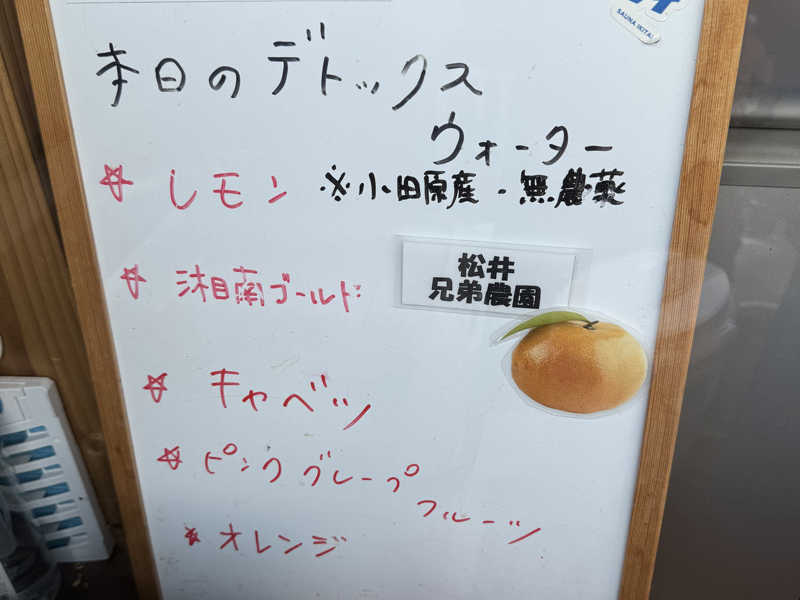 SAUNA IKITAI
本日のデトックス
ウォーター
☆ レモン ※小田原産・無農薬
☆ 湘南ゴールド
松井
兄弟農園
☆ キャベツ
☆ ピンクグレープ
フルーツ
☆ オレンジ